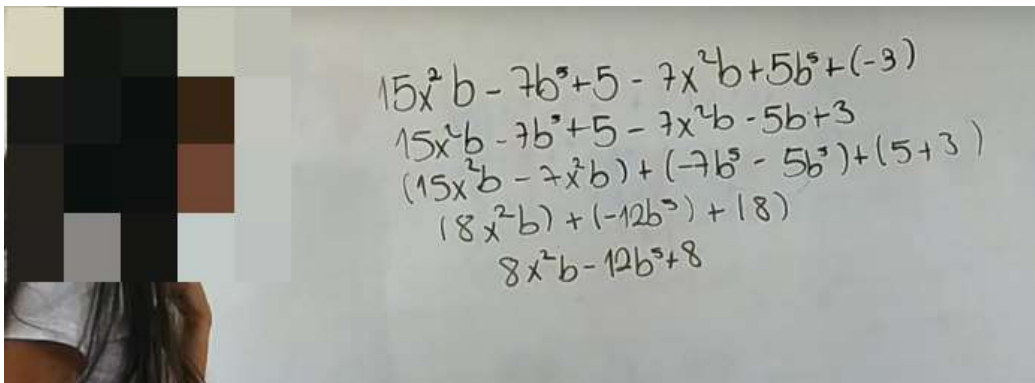 15x²b - 7b⁵+5 - 7x²b+5b⁵+(-3)
15x²b - 7b⁵+5 - 7x²b - 5b+3
(15x²b - 7x²b)+(-7b⁵ - 5b⁵)+(5+3)
(8x²b)+(-12b⁵)+(8)
8x²b-12b⁵+8